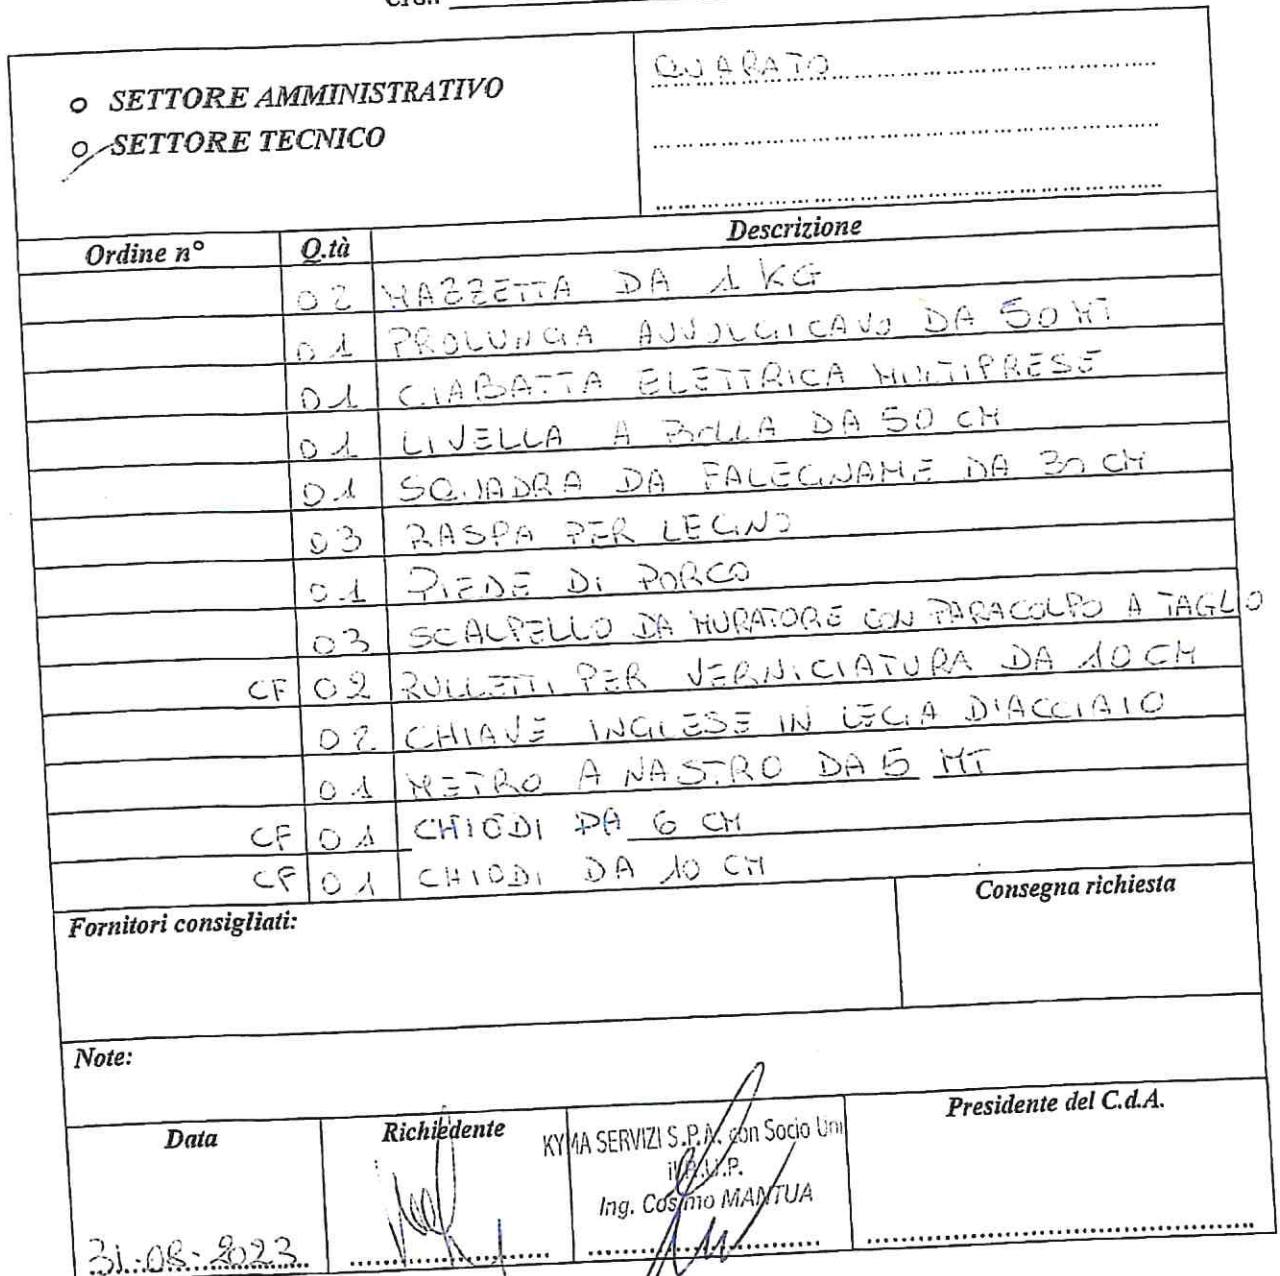 SETTORE AMMINISTRATIVO
SETTORE TECNICO
QUARATO
Ordine n° Q.tà Descrizione
02 MAZZETTA DA 1 KG
01 PROLUNGA AVVOLGICAVO DA 50 MT
01 CIABATTA ELETTRICA MULTIPRESE
01 LIVELLA A BOLLA DA 50 CM
01 SQUADRA DA FALEGNAME DA 30 CM
03 RASPA PER LEGNO
01 PIEDE DI PORCO
03 SCALPELLO DA MURATORE CON PARACOLPO A TAGLIO
CF 02 RULLETTI PER VERNICIATURA DA 10 CM
02 CHIAVE INGLESE IN LEGA D'ACCIAIO
01 METRO A NASTRO DA 5 MT
CF 01 CHIODI DA 6 CM
CF 01 CHIODI DA 10 CM
Fornitori consigliati: Consegna richiesta
Note:
Data Richiedente Presidente del C.d.A.
KYMA SERVIZI S.P.A. con Socio Uni
il R.U.P.
Ing. Cosimo MANTUA
31.08.2023